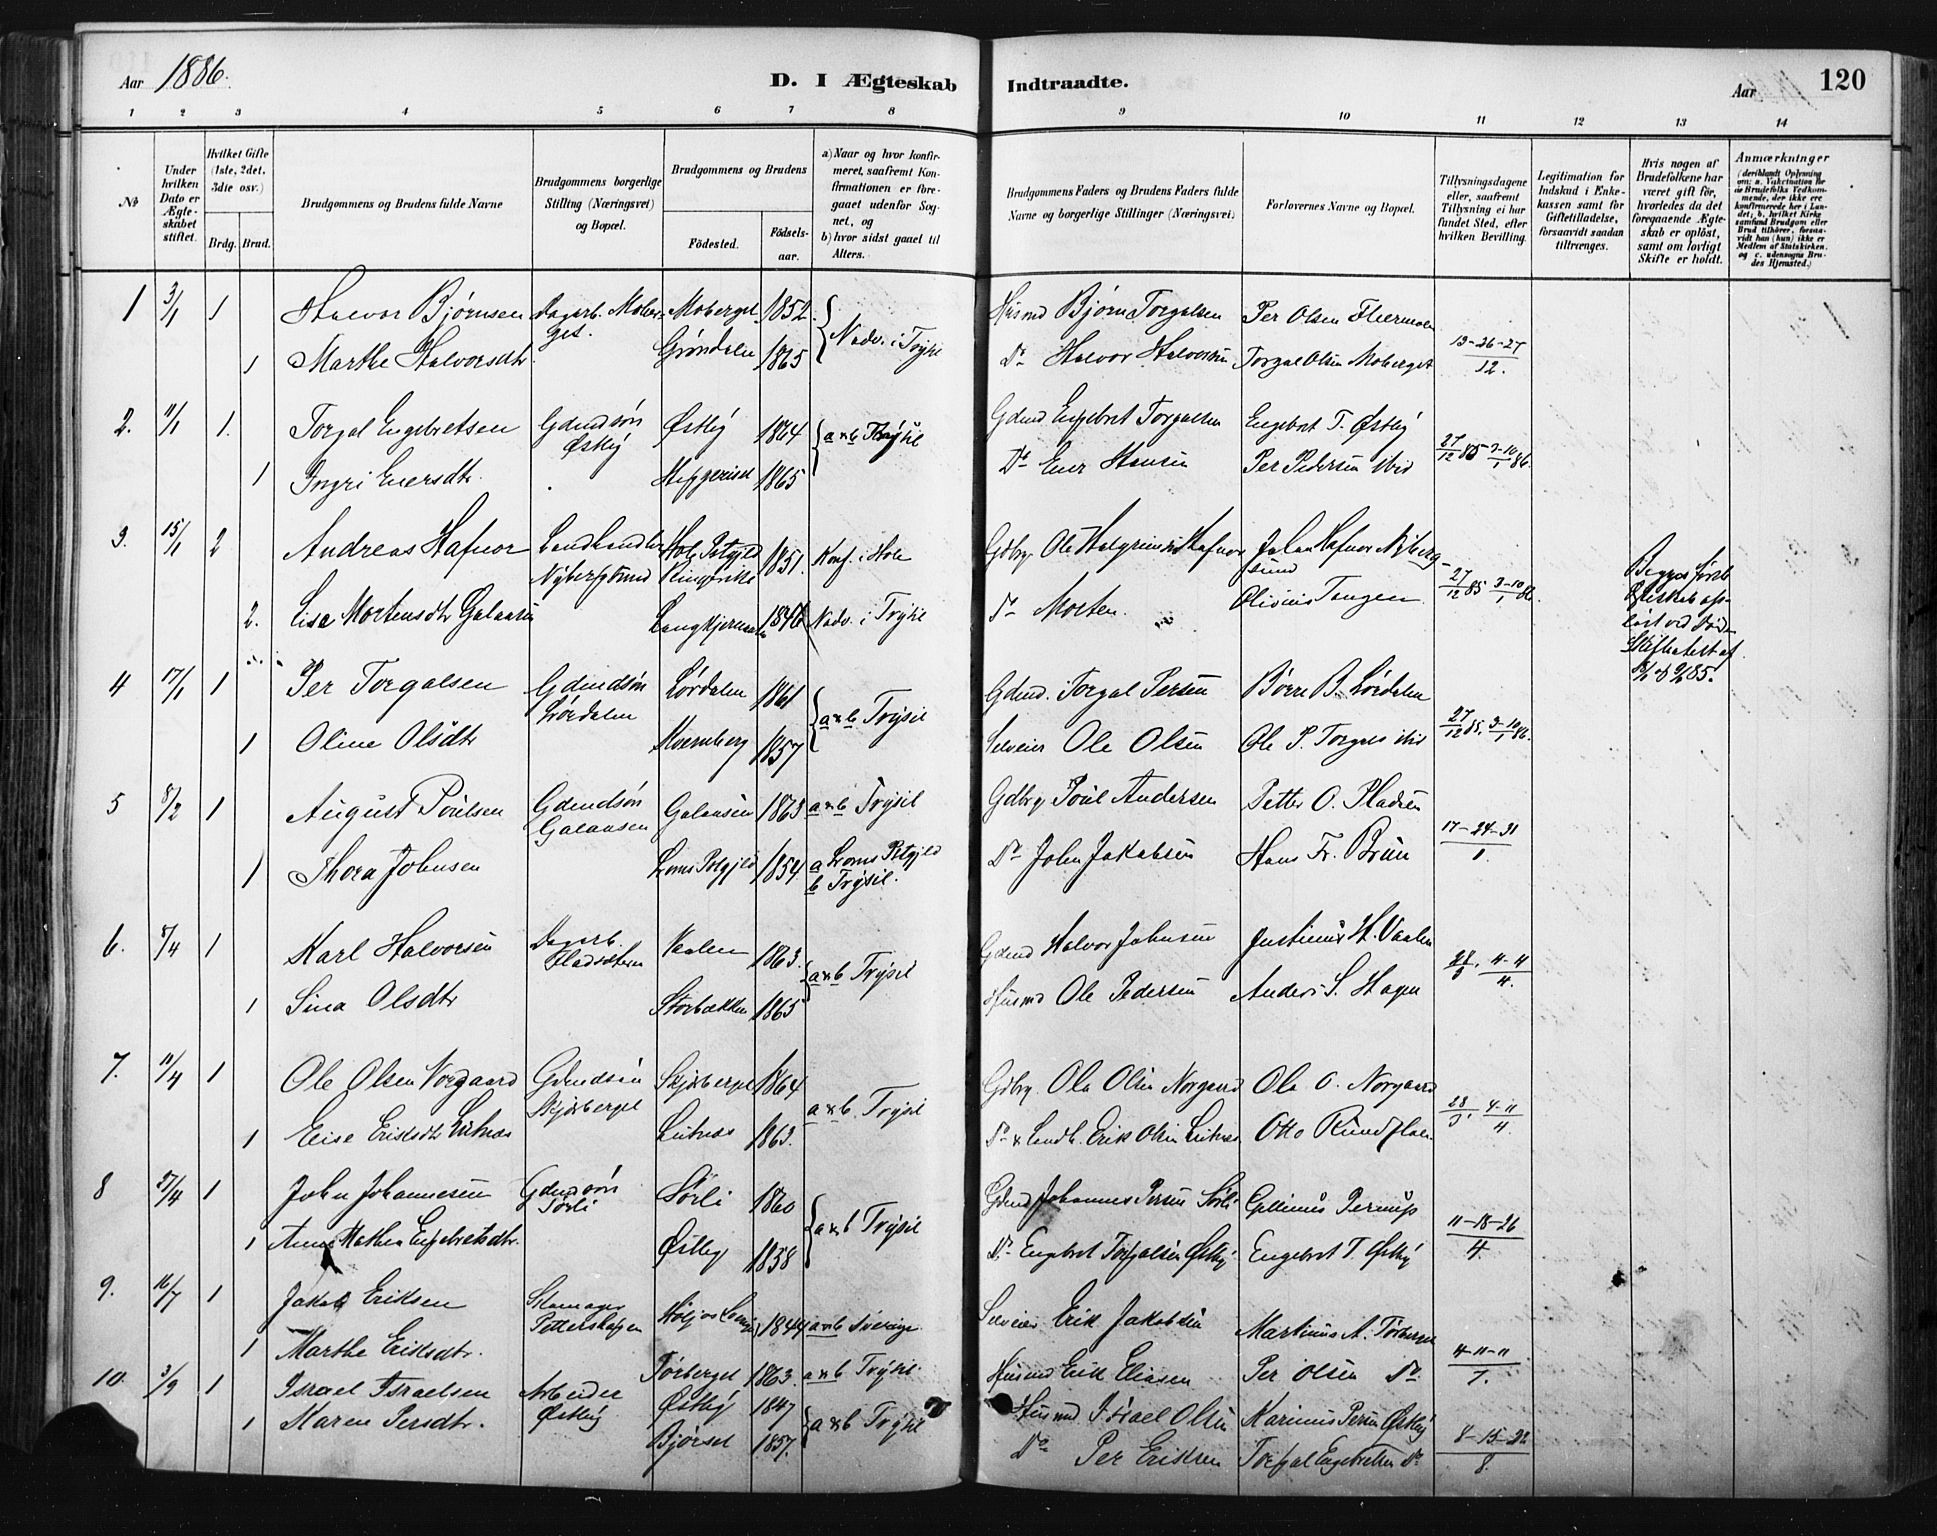 Aar 1886.
D. I Ægteskab Indtraadte.
Aar
120
1 2 3 4 5 6 7 8 9 10 11 12 13 14
No
Under hvilken Dato er Ægteskabet stiftet.
Hvilket Gifte (1ste, 2det, 3die osv.)
Brdg. Brud.
Brudgommens og Brudens fulde Navne
Brudgommens borgerlige Stilling (Næringsvei) og Bopæl.
Brudgommens og Brudens
Födested.
Födsels-aar.
a) Naar og hvor konfirmeret, saafremt Konfirmationen er foregaaet udenfor Sognet, og
b) hvor sidst gaaet til Alters.
Brudgommens Faders og Brudens Faders fulde Navne og borgerlige Stillinger (Næringsvei)
Forlovernes Navne og Bopæl.
Tillysningsdagene eller, saafremt Tillysning ei har fundet Sted, efter hvilken Bevilling.
Legitimation for Indskud i Enkekassen samt for Giftetilladelse, forsaavidt saadan tiltrænges.
Hvis nogen af Brudefolkene har været gift för, hvorledes da det foregaaende Ægteskab er oplöst, samt om lovligt Skifte er holdt.
Anmærkninger
(deriblandt Oplysning om: a. Vakcination for de Brudefolks Vedkommende, der ikke ere konfirmerede her i Landet; b. hvilket Kirkesamfund Brudgom eller Brud tilhörer, forsaavidt han (hun) ikke er Medlem af Statskirken. og c. udensogns Brudes Hjemsted.)
1 3/1 1 Halvor Bjørnsen Dagarb. Moberget. Moberget 1852. Nadv. i Trysil Husmd Bjørn Torgalsen Per Olsen Flermoen 13-26-27/12.
1 Marthe Halvorsdtr. Grøndalen 1865 Do Halvor Halvorsen Torgal Olsen Moberget
2. 11/1 1. Torgal Engebretsen Gdmdsön Østby Østby 1864 a & b Trysil Gdmd Engebret Torgalsen Engebret T. Østby 27/12 85 3-10/1 86.
1 Ingri Enersdtr. 1865 Do Ener Hansen Per Pedersen ibid
3. 15/1 2 Andreas Hafnor Landhandler Nybergsund Hole Pstgjld Ringerike 1851. Konf. i Hole Gdbrg. Ole Hafnor Johan Hafnor Nybergsund 27/12 85 3-10/1 86.
2. Lise Mortensdtr Galaasen 1846 Nadv. i Trysil Do Morten Olivius Tangen
Begges første
4 17/1 1 Per Torgalsen Gdmdsön Lørdalen Lørdalen 1861 a & b Trysil Gdmd. Torgal Persen Børre B. Lördalen 27/12 85. 3-10/1 86.
1 Oline Olsdtr Kvernberg 1857 Selveier Ole Olsen Ole P. Torgals ibid
5 8/2 1 August Poulsen Gdmdsön Galaasen Galaasen 1863 a & b Trysil Gdbrg. Poul Andersen Petter O. Pladsen 17-24-31/1.
1 Thora Johnsen Loms Pstgjeld 1854 a Loms Pstgjld b Trysil. Do John Jakobsen Hans Fr. Brun
6. 5/4 1 Karl Halvorsen Dagarb. Vaalen 1863. a & b Trysil Gdmd Halvor Johnsen Justinus H. Vaalen 28/3. 4-11/4.
1 Sina Olsdtr Storbækken 1865 Husmd Ole Pedersen Anders S. Hagen
7. 11/4 1 Ole Olsen Norgaard Gdmdsön Skjærberget Skjærberget 1864 a & b. Trysil Gdbrg. Ole Olsen Norgaard Ole O. Norgaard 28/3. 4-11/4.
1 Elise Eriksdtr Lutnæs Lutnæs 1863. Do & Landh. Erik Olsen Lutnæs Otto Rundfloen
8 27/4 1 John Johannesen Gdmdsön Sörli Sörli 1860 a & b Trysil Gdmd Johannes Persen Sörli Gullinus Persrup 11-18-26/4.
1 Anne Mathea Engebretsdtr. Østby 1858 Do Engebret Torgalsen Østby. Engebret T. Østby
9. 16/7 1 Jakob Eriksen Skomager Petterskogen 1844 a & b Sverige. Selveier Erik Jakobsen Martinus A. Törberget 4-11-11/7.
1 Marthe Eriksdtr. Törberget 1863. a & b Trysil Husmd Erik Eliasen Per Olsen Do
10. 3/9 1 Israel Israelsen Arbeider Østby Østby 1847 a & b Trysil Husmd Israel Olsen Karinus Persen Østby 8-15-22/8.
1 Karen Persdtr. Bjørset 1857. Do Per Eriksen Torgal Engebretsen Do